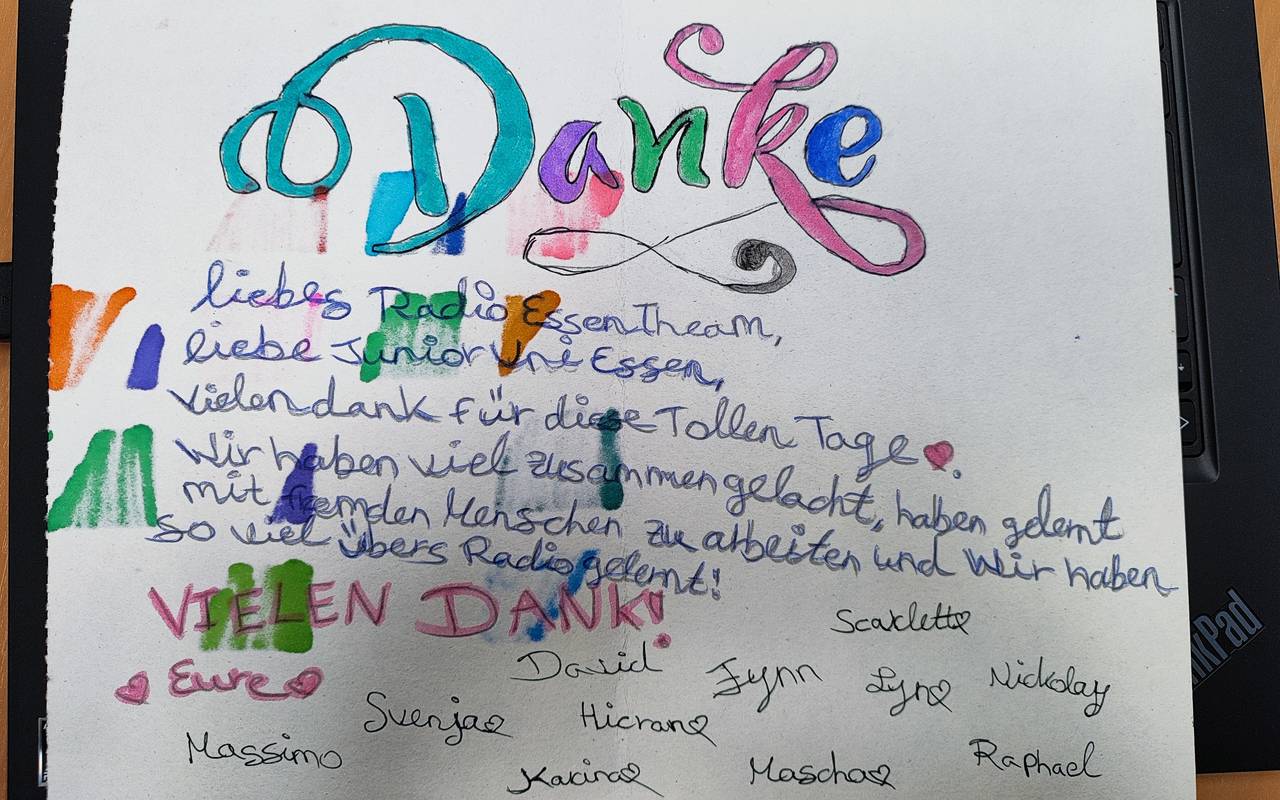 Danke
liebes Radio Essen Theam,
liebe Junior Uni Essen,
vielen dank für diese Tollen Tage.
Wir haben viel zusammen gelacht, haben gelernt
mit fremden Menschen zu arbeiten und Wir haben
so viel übers Radio gelernt!
VIELEN DANK!
Eure
Scarlett
David
Fynn
Lyn
Nickolay
Svenja
Hicran
Massimo
Karina
Mascha
Raphael
nkPad